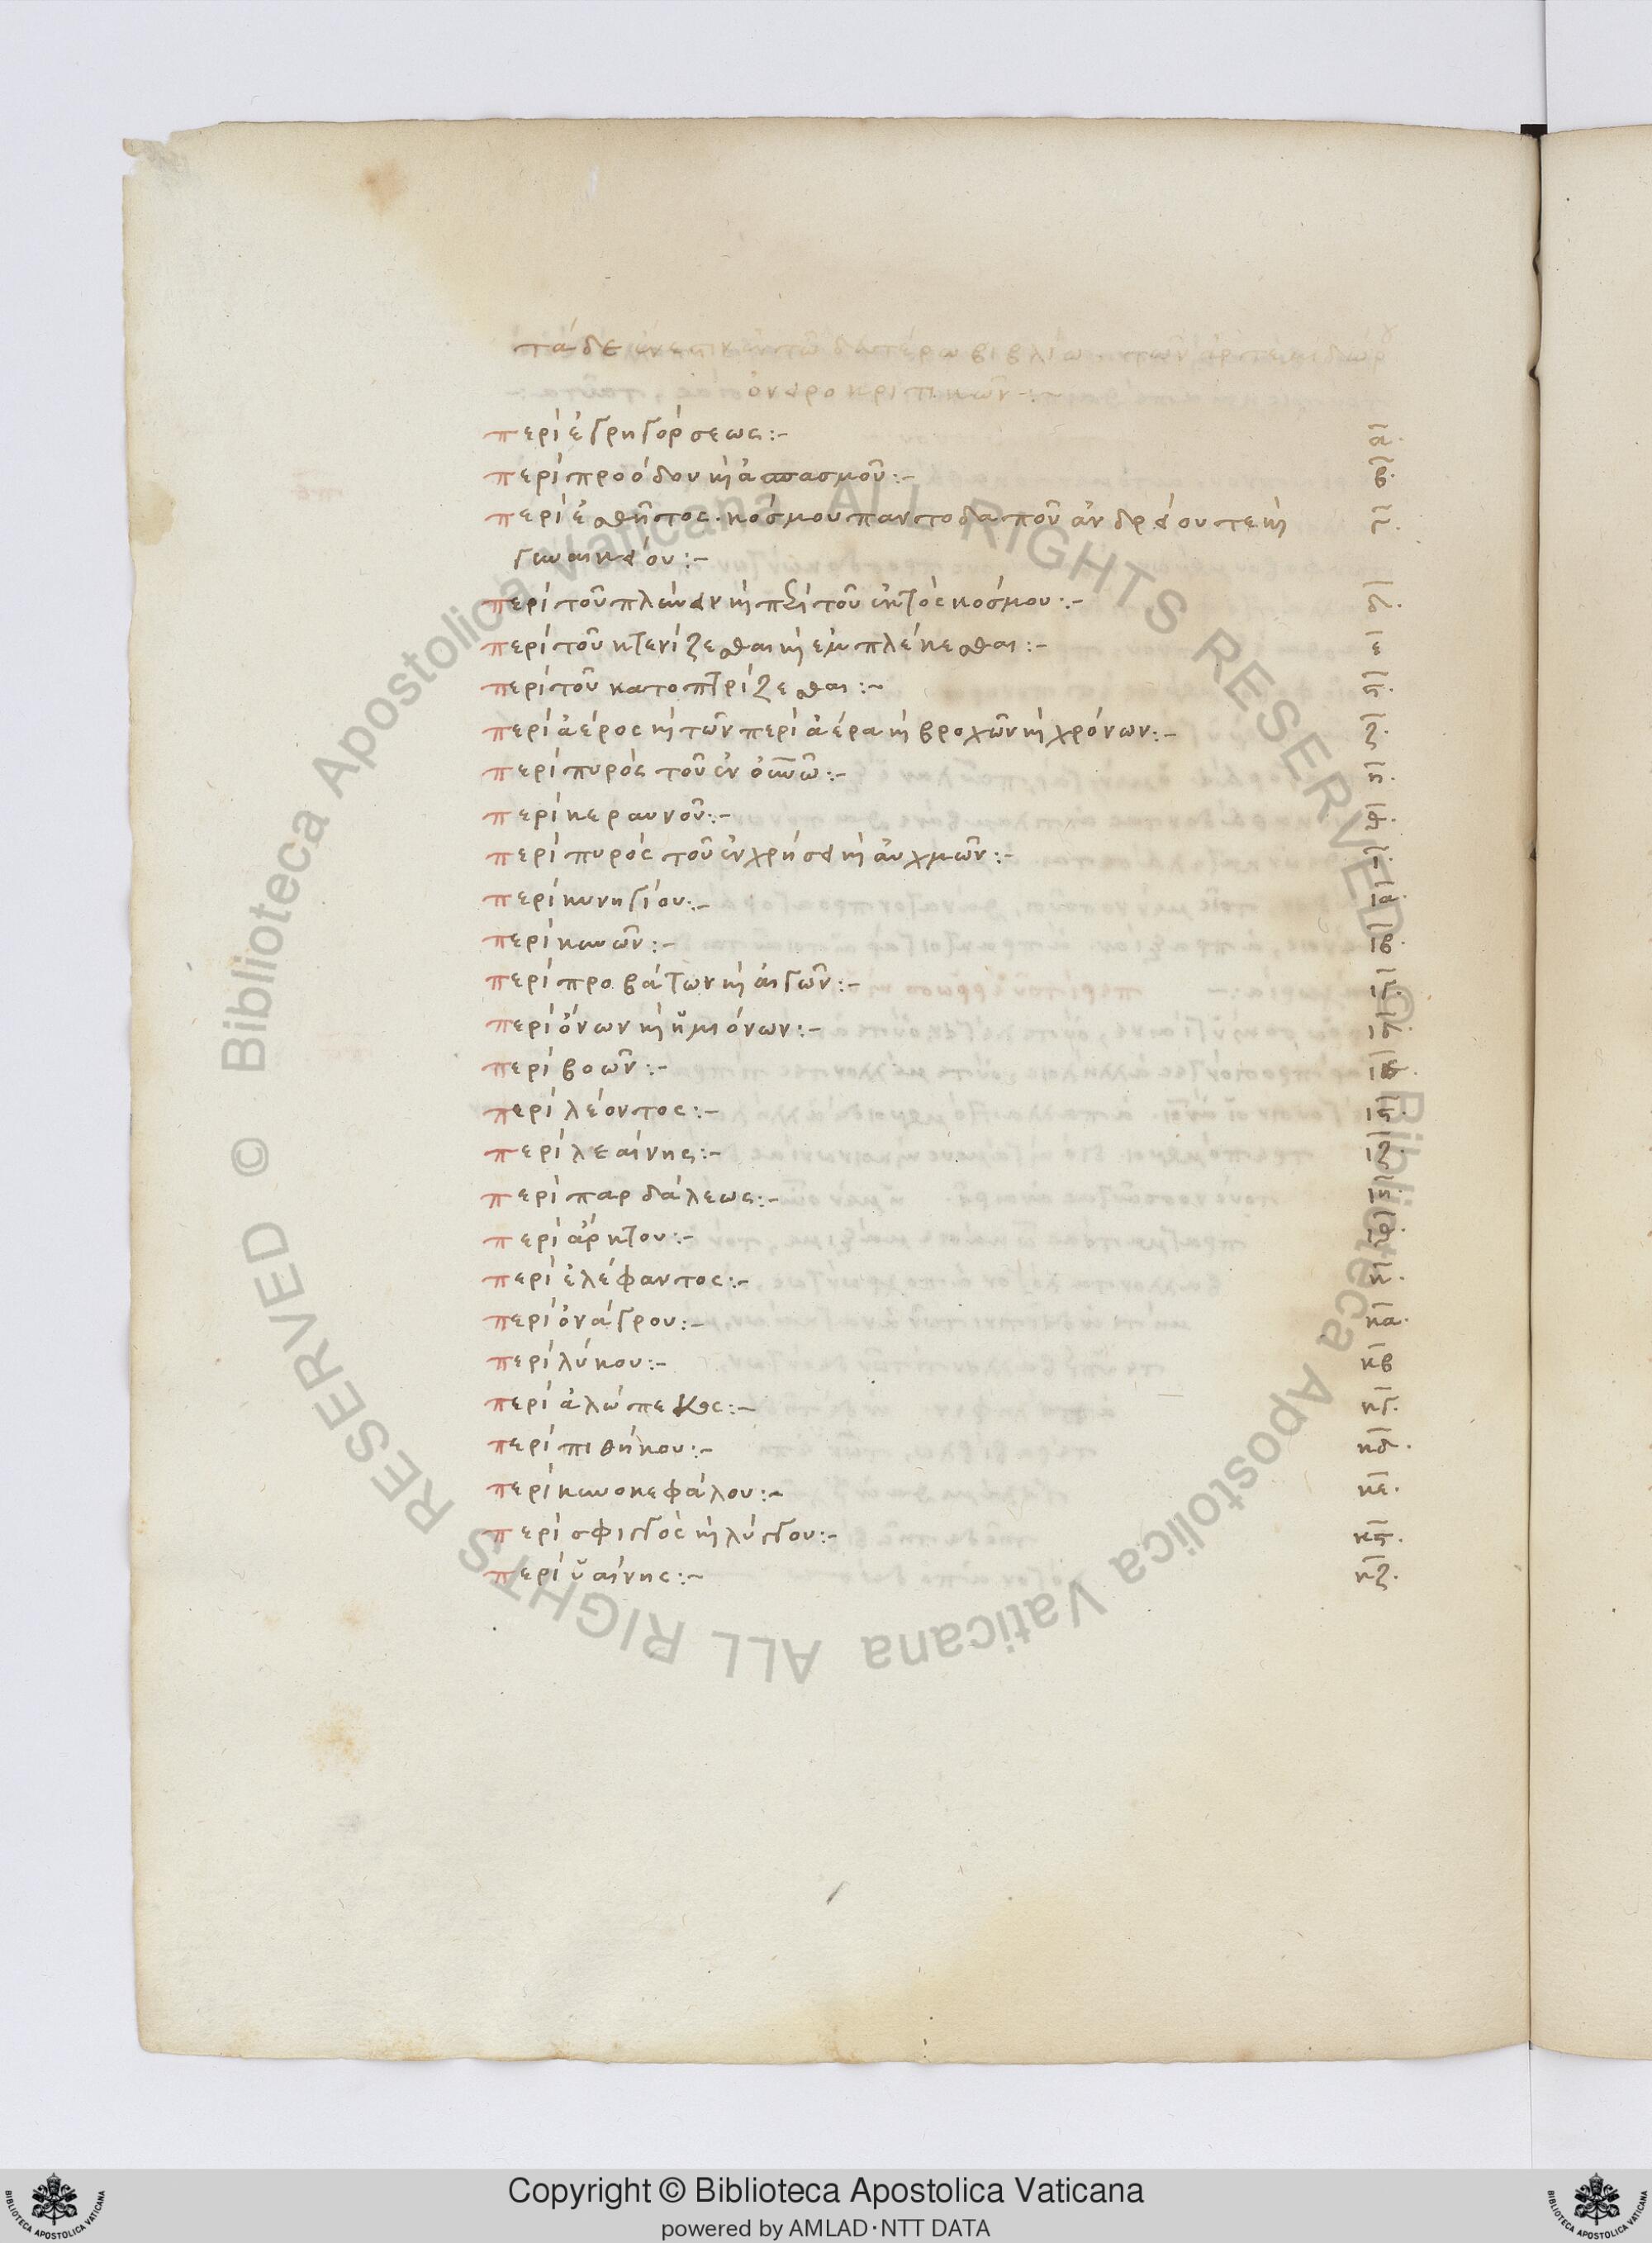 τάδε ἔνεστιν ἐν τῶ δευτέρω βιβλίω τῶν ἀρτεμιδώρ
ὀνειροκριτικῶν:~
περὶ ἐγρηγόρσεως:~ α̅.
περὶ προόδου κὶ ἀσπασμοῦ:~ β̅.
περὶ ἐσθῆτος. κόσμου παντοδαποῦ ἀνδρείου τε κὶ γ̅.
γυναικείου:~
περὶ τοῦ πλύνειν κὶ περὶ τοῦ ἐκτὸς κόσμου:~ δ̅.
περὶ τοῦ κτενίζεσθαι κὶ ἐμπλέκεσθαι:~ ε̅
περὶ τοῦ κατοπτρίζεσθαι:~ ς̅.
περὶ ἀέρος κὶ τῶν περὶ ἀέρα κὶ βροχῶν κὶ χρόνων:~ ζ̅.
περὶ πυρὸς τοῦ ἐν ουνῶ:~ η̅.
περὶ κεραυνοῦ:~ θ̅.
περὶ πυρὸς τοῦ ἐν χρήσει κὶ αὐχμῶν:~ ι̅.
περὶ κυνηγίου:~ ι̅α̅.
περὶ κυνῶν:~ ι̅β̅.
περὶ προβάτων κὶ αἰγῶν:~ ι̅γ̅.
περὶ ὄνων κὶ ἡμιόνων:~ ι̅δ̅.
περὶ βοῶν:~ ι̅ε̅.
περὶ λέοντος:~ ι̅ς̅.
περὶ λεαίνης:~ ι̅ζ̅.
περὶ παρδάλεως:~ ι̅η̅.
περὶ ἄρκτου:~ ι̅θ̅.
περὶ ἐλέφαντος:~ κ̅.
περὶ ὀνάγρου:~ κ̅α̅.
περὶ λύκου:~ κ̅β̅
περὶ ἀλώπεκος:~ κ̅γ̅.
περὶ πιθήκου:~ κ̅δ̅.
περὶ κυνοκεφάλου:~ κ̅ε̅.
περὶ σφιγγὸς κὶ λύγγου:~ κ̅ς̅.
περὶ ὑαίνης:~ κ̅ζ̅.
© Biblioteca Apostolica Vaticana ALL RIGHTS RESERVED © Biblioteca Apostolica Vaticana ALL RIGHTS RESERVED
Copyright © Biblioteca Apostolica Vaticana
powered by AMLAD·NTT DATA
BIBLIOTECA APOSTOLICA VATICANA
BIBLIOTECA APOSTOLICA VATICANA